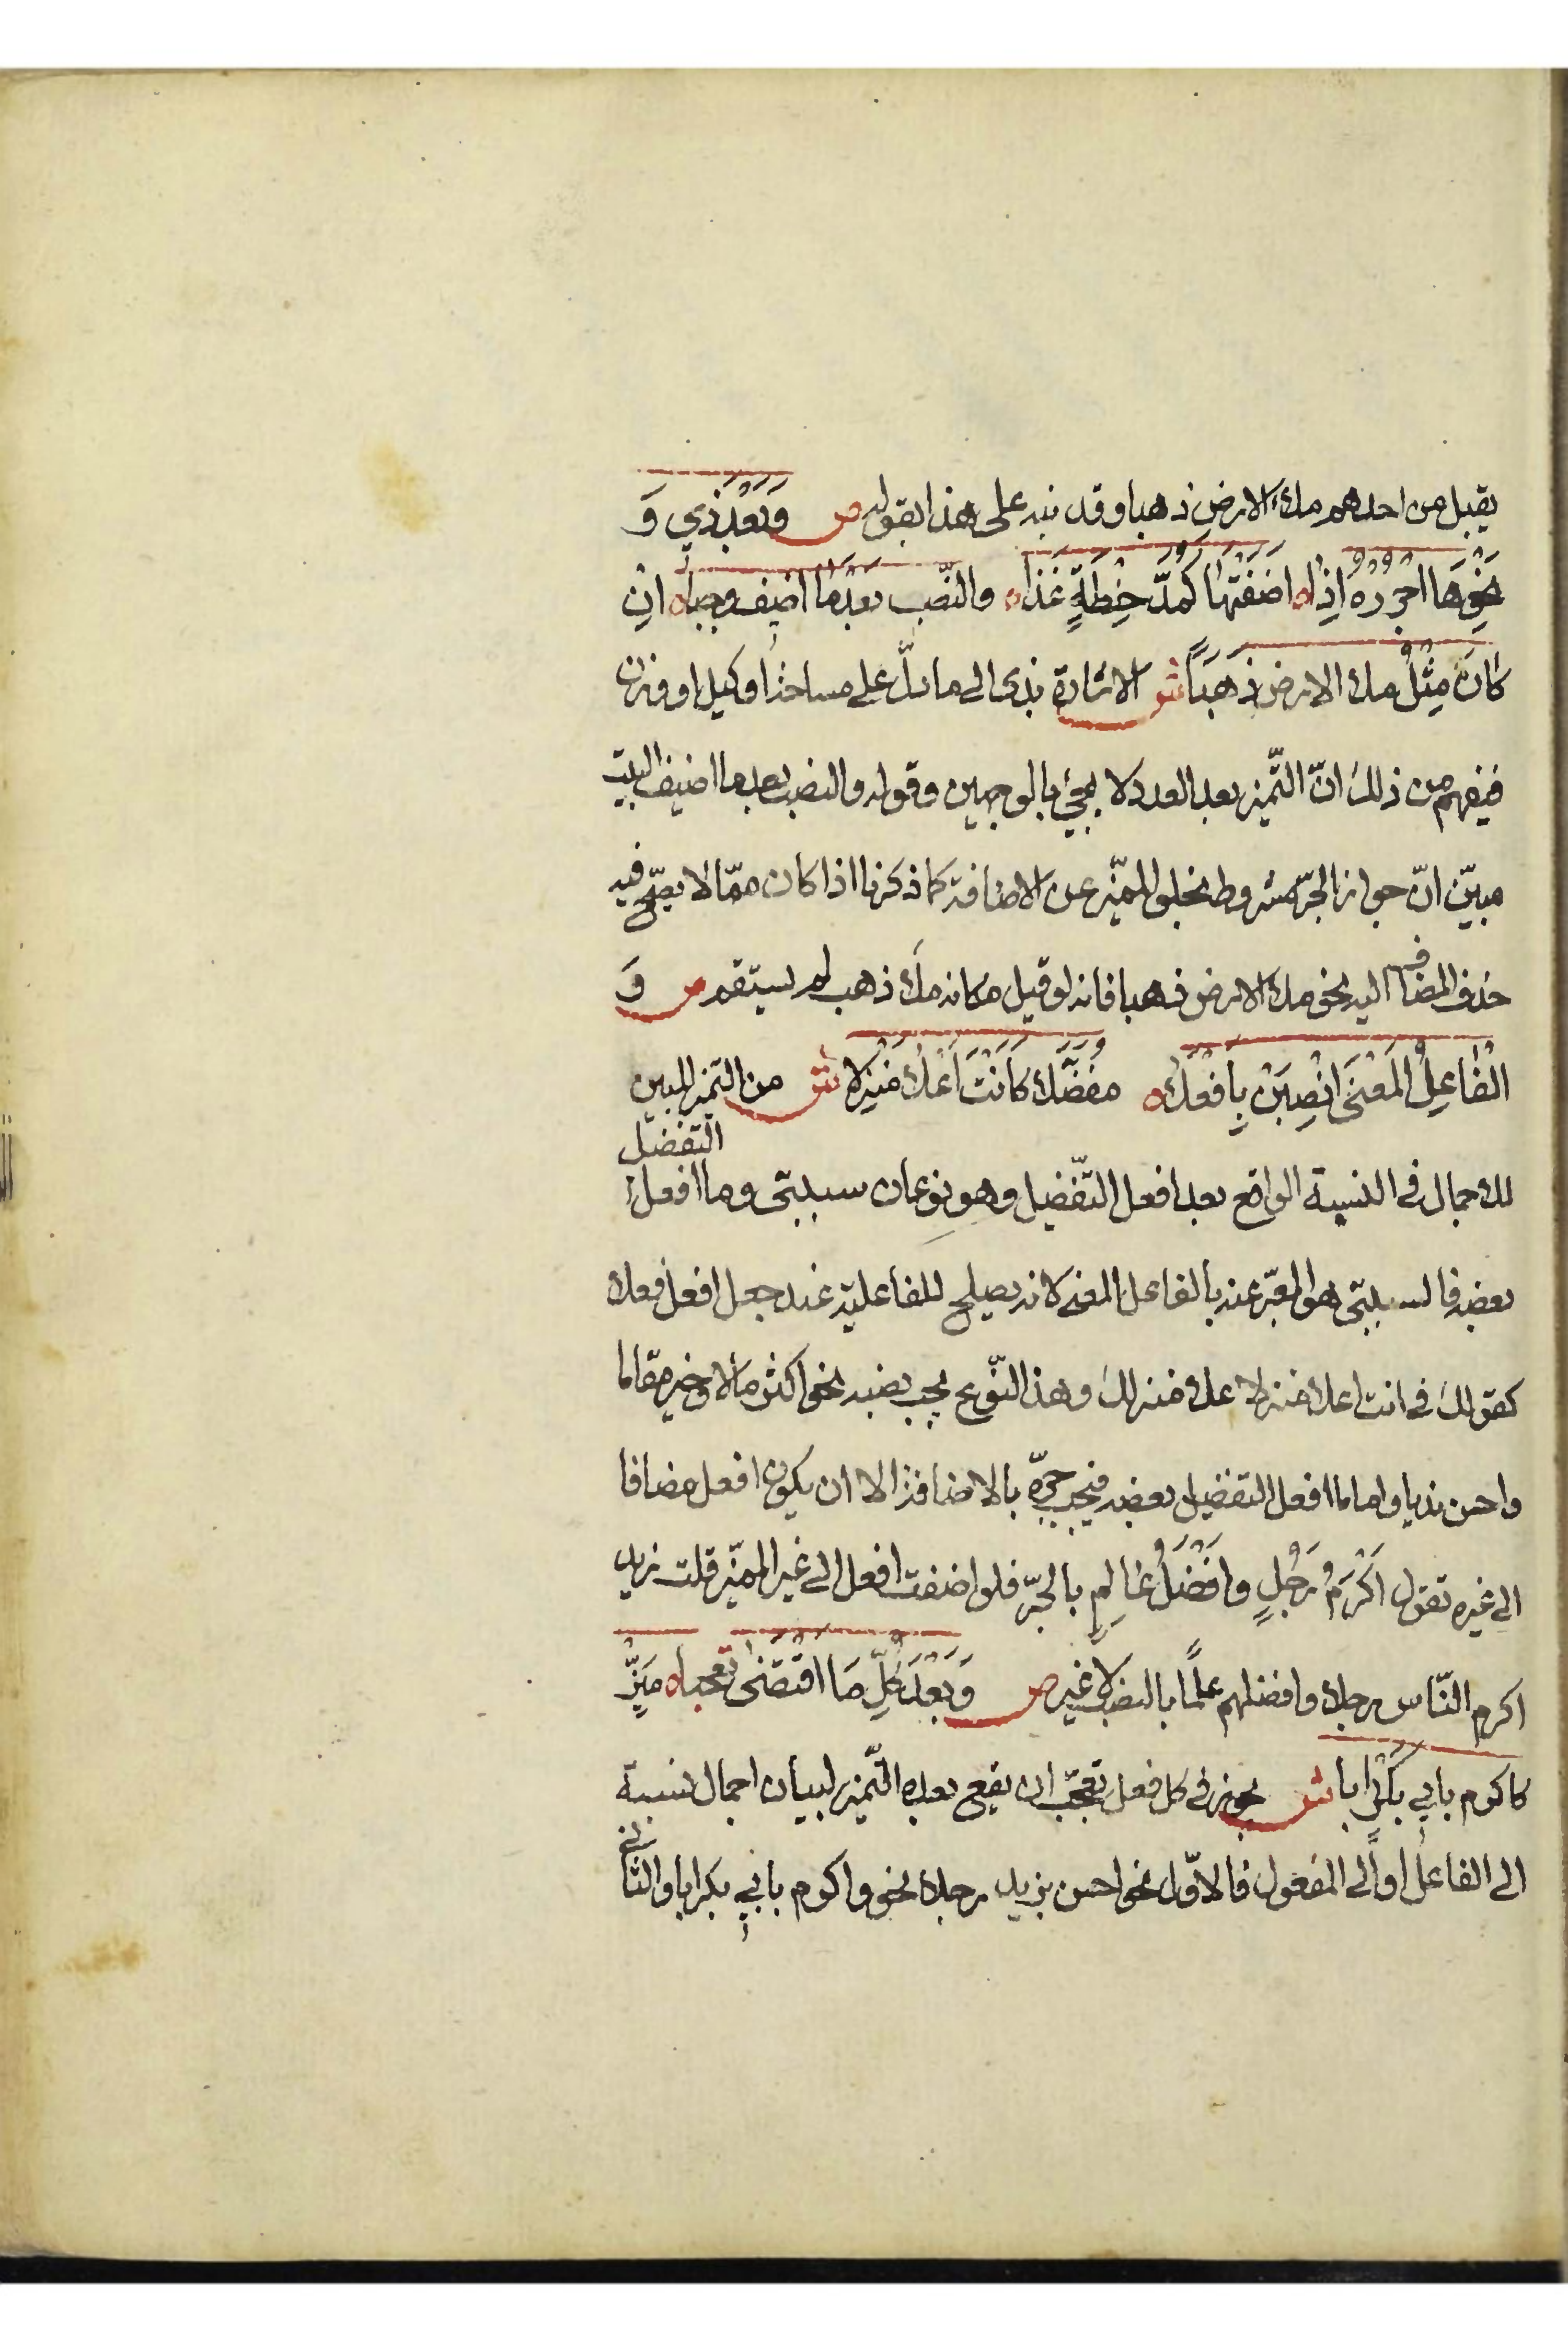 يقبل من احدهم ملء الارض ذهبا وقد نبه على هذا بقوله ص وَبَعْدَ ذِي وَ
نَحْوِهَا اجْرُرْهُ اِذَا اَضَفْتَهَا كَمُدّ حِنْطَةٍ غَذَا والنّصب بَعْدَ مَا اضيف وجبا اِنْ
كَانَ مِثْلَ ملء الارض ذَهَبَاً ش الاشارة بذى الى ما دلّ على مساحة او كيل او وزن
فيفهم من ذلك انّ التّميز بعد العدد لا يجئ بالوجهين وقوله والنصب بعد ما اضيف البيت
مبيّن انّ جواز الجرّ مشروط بخلو المميّز عن الاضافة كما ذكرنا اذا كان ممّا لا يصّح فيه
حذف المضاف اليه نحو ملء الارض ذهبا فانه لو قيل مكانه ملء ذهب لم يستقم ص وَ
الْفَاعِلُ الْمَعْنَى انْصِبَنْ بِاَفْعَلَا مُفَضِّلًا كَاَنْتَ اَعْلَا مَنْزِلَا ش من التميز المبين
التفضيل
للاجمال فى النسبة الواقع بعد افعل التّفضيل وهو نوعان سببىّ وما افعل
بعضه فالسببىّ هو المعبّر عنه بالفاعل المعنى لانه يصلح للفاعليّة عند جعل افعل فعلا
كقولك فى انت اعلا منزلا علا منزلك وهذا النّوع يجب نصبه نحو اكثر مالا وخير مقاما
واحسن نديا واما ما افعل التفضيل بعضه فيجب جرّه بالاضافة الا ان يكون افعل مضافا
الى غيره تقول اَكْرَمُ رَجُلٍ وافْضَلُ عَالِمٍ بالجرّ فلو اضفت افعل الى غير المميّز قلت زيد
اكرم النّاس رجلا وافضلهم علمًا بالنصب لا غير ص وَبَعْدَ كُلِّ مَا اقْتَضَى تعجبا مَيِّزْ
كاكرم بابي بَكْرٍ ابا ش يجوز فى كل فعل تعجّب ان يقع بعده التّميز لبيان اجمال نسبة
الى الفاعل او الى المفعول فالاوّل نحو احسن بزيد رجلا نحو واكرم بابي بكر ابا والثانى